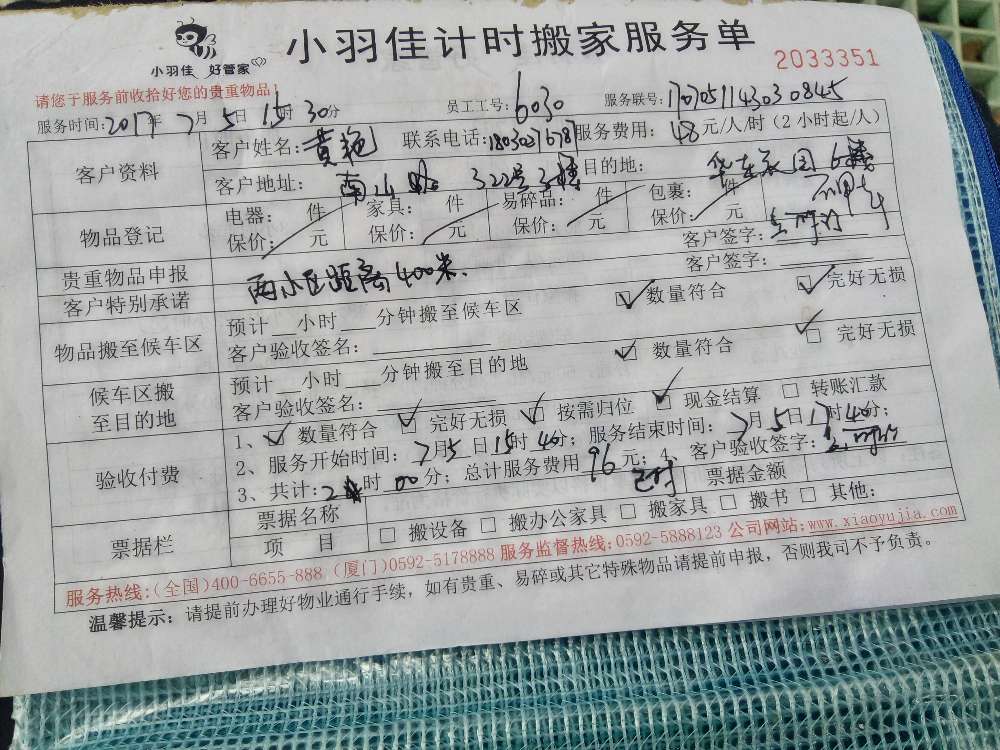 小羽佳 好管家
小羽佳计时搬家服务单
2033351
请您于服务前收拾好您的贵重物品!
服务时间:2017年7月5日15时30分 员工工号:6030 服务联号:170705114303 0845
客户资料
客户姓名:黄艳 联系电话: 服务费用:48元/人/时(2小时起/人)
客户地址:南山路322号3楼 目的地:华东花园6楼
物品登记
电器: 件 家具: 件 易碎品: 件 包裹: 件
保价: 元 保价: 元 保价: 元 保价: 元
贵重物品申报 客户签字:
客户特别承诺 两小区距离400米. 客户签字:
物品搬至候车区
预计 小时 分钟搬至候车区 数量符合 完好无损
客户验收签名:
候车区搬至目的地
预计 小时 分钟搬至目的地 数量符合 完好无损
客户验收签名:
验收付费
1、数量符合 完好无损 按需归位 现金结算 转账汇款
2、服务开始时间:7月5日15时40分; 服务结束时间:7月5日17时40分;
3、共计:2时00分; 总计服务费用96元; 4、客户验收签字:
票据栏
票据名称 票据金额
项 目 搬设备 搬办公家具 搬家具 搬书 其他:
服务热线:(全国)400-6655-888 (厦门)0592-5178888 服务监督热线:0592-5888123 公司网站:www.xiaoyujia.com
温馨提示: 请提前办理好物业通行手续,如有贵重、易碎或其它特殊物品请提前申报,否则我司不予负责。